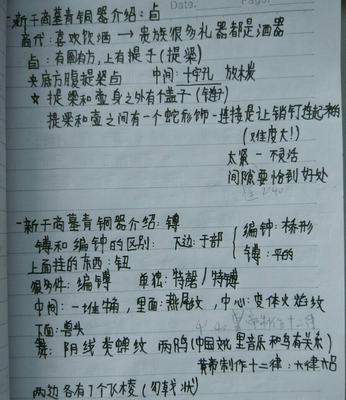 Date.
Page.
-新干商墓青铜器介绍：卣
商代：喜欢饮酒 → 贵族很多礼器都是酒器
卣：有圆有方，上有提手（提梁）
夹底方腹提梁卣 中间：十字孔 放木炭
☆ 提梁和壶身之外有个盖子（链子）
提梁和壶之间有一个蛇形饰-连接是让销钉连起来的
（难度大！）
太紧-不灵活
间隙要恰到好处
-新干商墓青铜器介绍：镈
镈和编钟的区别：下边：于部 { 编钟：桥形
镈：平的
上面挂的东西：钮
很多件：编镈 单独：特磬/特镈
中间：一堆牛角，里面：燕尾纹，中心：变体火焰纹
下面：兽头
舞：阴线类蝉纹 两鸟（中国妣里音乐和鸟有关系）
黄帝制作十二律：六律六吕
两边各有7个飞棱（勾戟状）